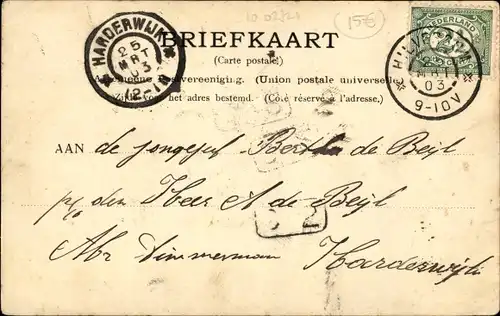 10 02/21
15€
HARDERWIJK
25
MRT
03
12-1
BRIEFKAART
NEDERLAND
HILVERSUM
03
9-10V
(Carte postale)
Algemeene Postvereeniging. (Union postale universelle)
Zijde voor het adres bestemd. (Côté réservé à l'adresse.)
AAN de jongejuf Bertha de Beijl
p/a den Heer A de Beijl
2
Abr Timmerman Harderwijk